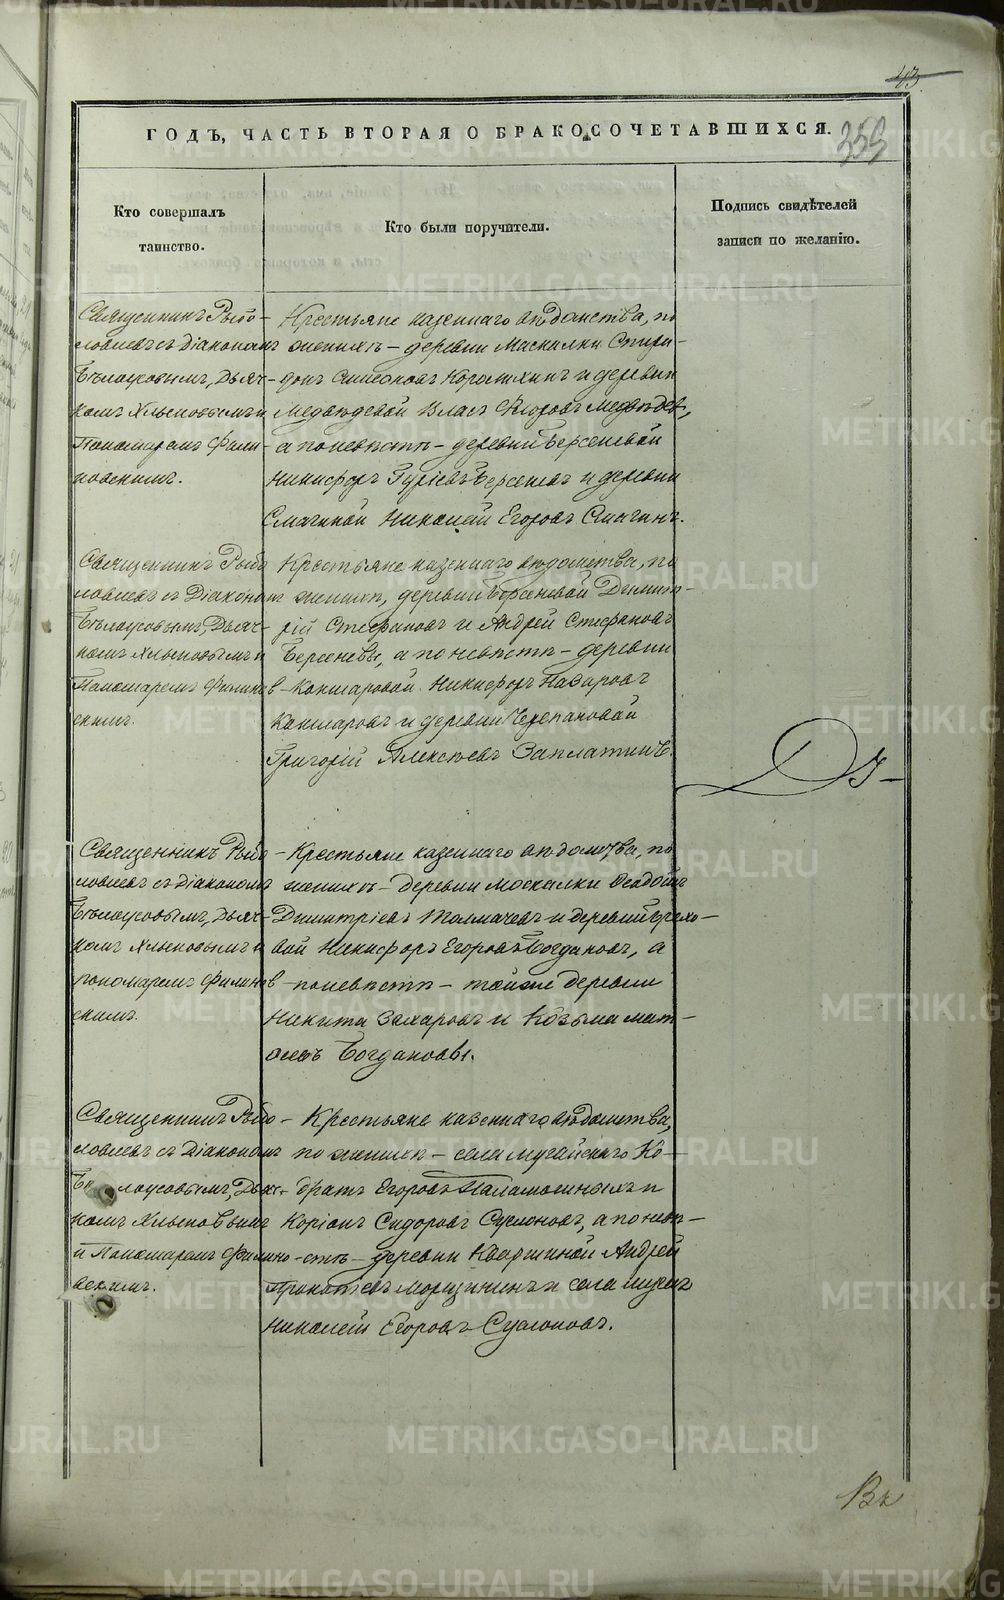 43
ГОДЪ, ЧАСТЬ ВТОРАЯ О БРАКОСОЧЕТАВШИХСЯ.
359
Кто совершалъ
таинство.
Кто были поручители.
Подпись свидѣтелей
записи по желанію.
Священникъ Рыбо-
ловлевъ съ Діакономъ
Бѣлоусовымъ, Дьяч-
комъ Хлыновымъ и
Пономаремъ Фили-
новскимъ.
Крестьяне казеннаго вѣдомства, по
женихѣ - деревни Маскалки Спири-
донъ Симеоновъ и деревни
Медвѣдевой Власъ Егоровъ Медвѣдевъ,
а по невѣстѣ - деревни Берсеневой
Никифоръ Гурiевъ Берсеневъ и деревни
Смагиной Николай Егоровъ Смагинъ.
Священникъ Рыбо
ловлевъ съ Діакономъ
Бѣлоусовымъ, Дьяч-
комъ Хлыновымъ и
Пономаремъ Филинов-
скимъ.
Крестьяне казеннаго вѣдомства, по
женихѣ, деревни Берсеневой Димит-
рій Стефановъ и Андрей Стефановъ
Берсеневы, а по невѣстѣ - деревни
Кокшаровой Никифоръ Назаровъ
Кокшаровъ и деревни Черепановой
Григорій Алексѣевъ Заплатинъ.
Священникъ Рыбо
ловлевъ съ Діакономъ
Бѣлоусовымъ, Дьяч-
комъ Хлыновымъ и
пономаремъ Филинов
скимъ.
Крестьяне казеннаго вѣдомства, по
женихѣ - деревни Москалки
Димитріевъ Толмачовъ и деревни
вой Никифоръ Егоровъ Богдановъ, а
по невѣстѣ - тойже деревни
Никита Захаровъ и Козьма Мат-
Богдановы.
Священникъ Рыбо-
ловлевъ съ Діакономъ
Бѣлоусовымъ, Дьяч-
комъ Хлыновымъ
и Пономаремъ Филино-
вскимъ.
Крестьяне казеннаго вѣдомства,
по женихѣ - села Мугайскаго Ко-
дратъ Егоровъ и
Сидоровъ Суслоновъ, а по невѣ-
стѣ - деревни Андрей
Прокопіевъ и села
Николай Егоровъ Суслоновъ.
METRIKI.GASO-URAL.RU